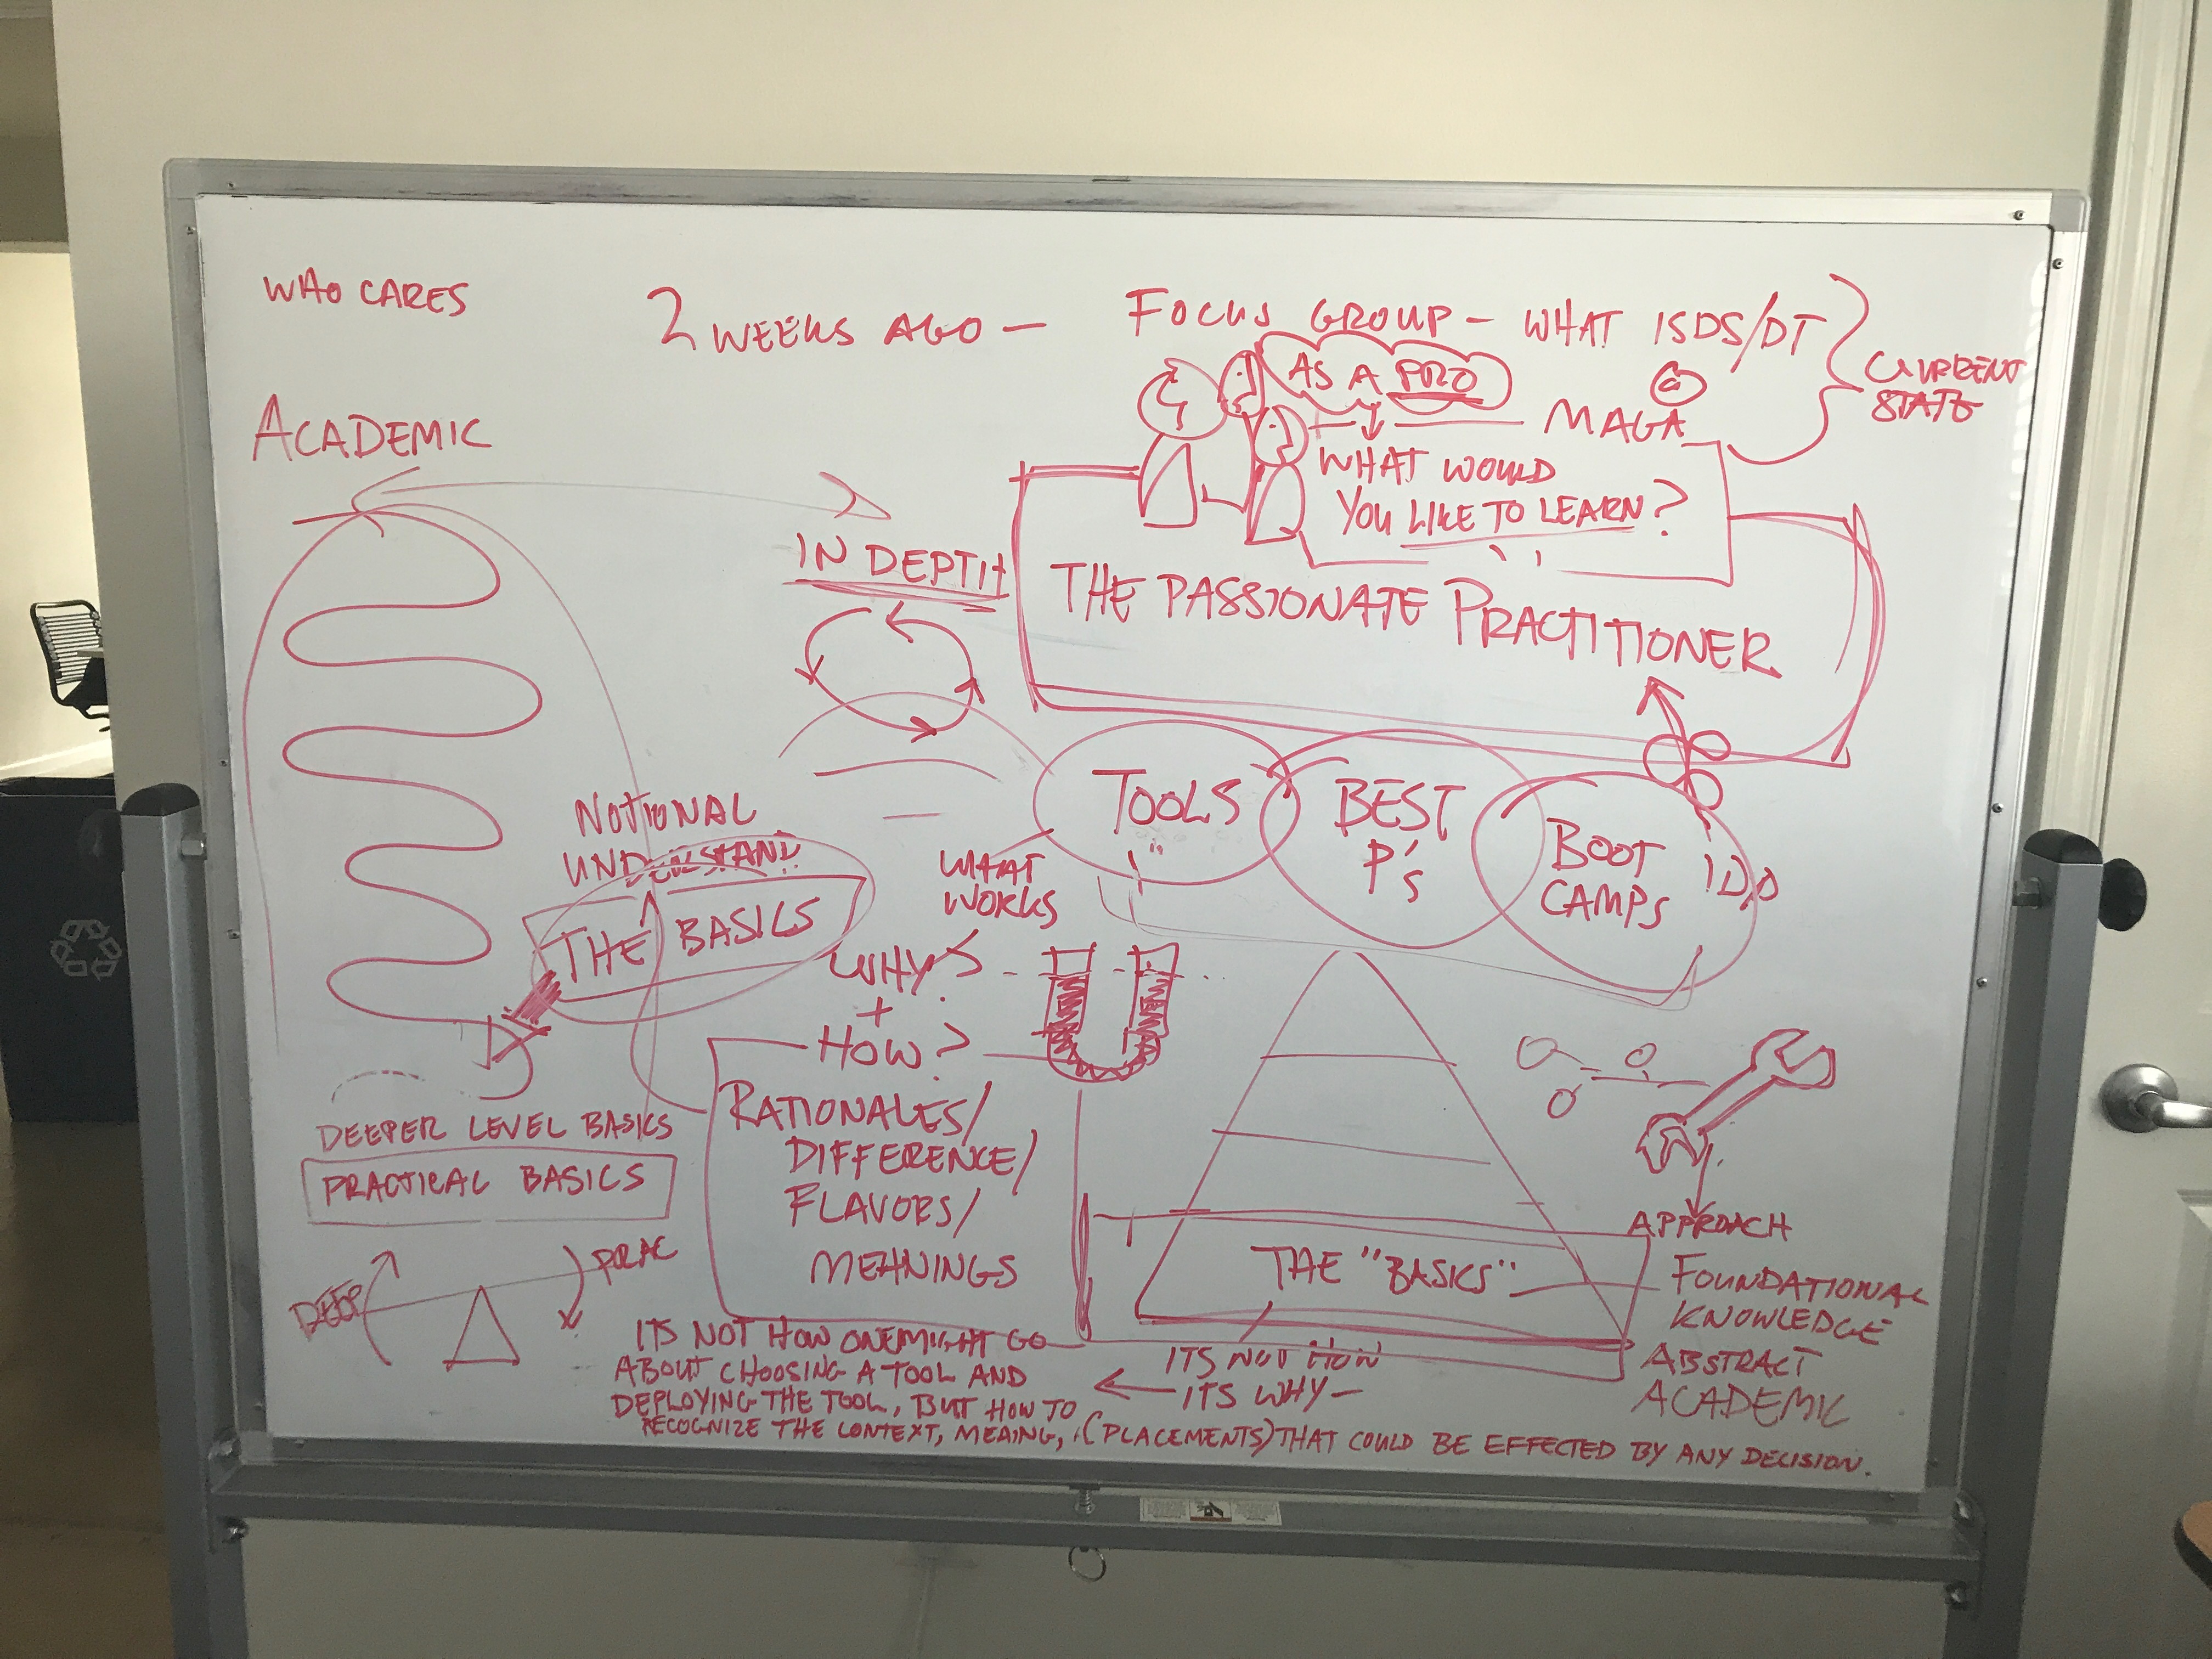 WHO CARES
2 WEEKS AGO —
FOCUS GROUP - WHAT IS DS/DT
CURRENT
STATE
AS A PRO
MAGA
WHAT WOULD
YOU LIKE TO LEARN?
ACADEMIC
IN DEPTH
THE PASSIONATE PRACTITIONER
TOOLS
BEST
P's
BOOT
CAMPS
WHAT
WORKS
NOTIONAL
UNDERSTAND
THE BASICS
WHY?
+
HOW?
RATIONALES/
DIFFERENCE/
FLAVORS/
MEANINGS
DEEPER LEVEL BASICS
PRACTICAL BASICS
DEEP
PRAC
THE "BASICS"
APPROACH
FOUNDATIONAL
KNOWLEDGE
ABSTRACT
ACADEMIC
ITS NOT HOW
ITS WHY—
ITS NOT HOW ONE MIGHT GO
ABOUT CHOOSING A TOOL AND
DEPLOYING THE TOOL, BUT HOW TO
RECOGNIZE THE CONTEXT, MEANING, (PLACEMENTS) THAT COULD BE EFFECTED BY ANY DECISION.